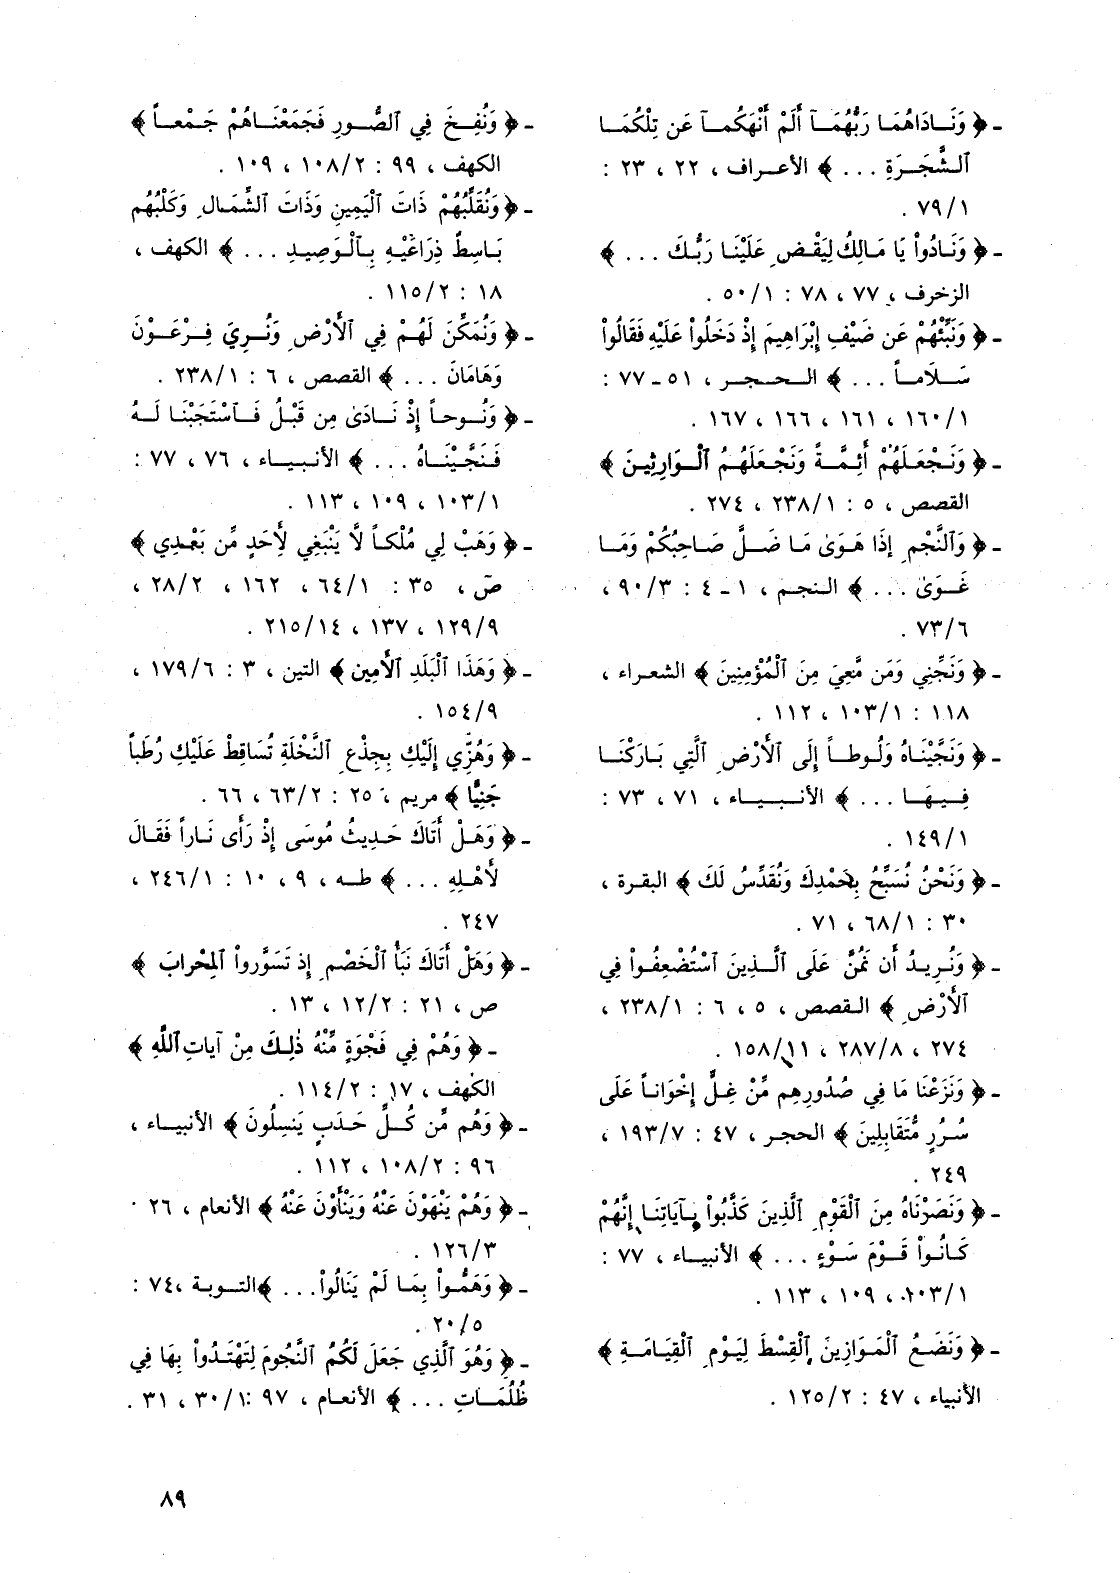 - ﴿ وَنَـادَاهُمَا رَبُّهُمَـآ أَلَمْ أَنْهَكُمـآ عَن تِلْكُمَـا
ٱلـشَّجَـرَةِ ... ﴾ الأعـراف ، ٢٢ ، ٢٣ :
٧٩/١ .
- ﴿ وَنَـادُواْ يَا مَـالِكُ لِيَقْـضِ عَلَيْنَـا رَبُّـكَ ... ﴾
الزخرف ، ٧٧ ، ٧٨ : ٥٠/١ .
- ﴿ وَنَبِّئْهُمْ عَن ضَيْفِ إِبْرَاهِيمَ إِذْ دَخَلُواْ عَلَيْهِ فَقَالُواْ
سَـلَامـاً ... ﴾ الـحـجـر ، ٥١ - ٧٧ :
١٦٠/١ ، ١٦١ ، ١٦٦ ، ١٦٧ .
- ﴿ وَنَـجْعَـلَهُمْ أَئِمَّـةً وَنَجْعَلَهُـمُ ٱلْـوَارِثِيـنَ ﴾
القصص ، ٥ : ٢٣٨/١ ، ٢٧٤ .
- ﴿ وَٱلنَّجْمِ إِذَا هَـوَىٰ مَـا ضَـلَّ صَـاحِبُكُمْ وَمَـا
غَـوَىٰ ... ﴾ الـنجـم ، ١ - ٤ : ٩٠/٣ ،
٧٣/٦ .
- ﴿ وَنَجِّنِي وَمَن مَّعِيَ مِنَ ٱلْمُؤْمِنِينَ ﴾ الشعـراء ،
١١٨ : ١٠٣/١ ، ١١٢ .
- ﴿ وَنَجَّيْنَـاهُ وَلُـوطـاً إِلَى ٱلْأَرْضِ ٱلَّتِي بَـارَكْنَـا
فِـيـهَـا ... ﴾ الأنـبـيـاء ، ٧١ ، ٧٣ :
١٤٩/١ .
- ﴿ وَنَحْنُ نُسَبِّحُ بِحَمْدِكَ وَنُقَدِّسُ لَكَ ﴾ البقرة ،
٣٠ : ٦٨/١ ، ٧١ .
- ﴿ وَنُـرِيـدُ أَن نَّمُنَّ عَلَى ٱلَّـذِينَ ٱسْتُضْعِفُـواْ فِي
ٱلْأَرْضِ ﴾ الـقصص ، ٥ ، ٦ : ٢٣٨/١ ،
٢٧٤ ، ٢٨٧/٨ ، ١٥٨/١١ .
- ﴿ وَنَزَعْنَا مَا فِي صُدُورِهِم مِّنْ غِلٍّ إِخْوَانـاً عَلَى
سُـرُرٍ مُّتَقَابِلِينَ ﴾ الحجر ، ٤٧ : ١٩٣/٧ ،
٢٤٩ .
- ﴿ وَنَصَرْنَاهُ مِـنَ ٱلْقَوْمِ ٱلَّذِينَ كَذَّبُواْ بِـآيَاتِنَـا إِنَّهُمْ
كَـانُـواْ قَـوْمَ سَـوْءٍ ... ﴾ الأنبيـاء ، ٧٧ :
١٠٣/١ ، ١٠٩ ، ١١٣ .
- ﴿ وَنَضَـعُ ٱلْمَـوَازِينَ ٱلْقِسْطَ لِيَـوْمِ ٱلْقِيَـامَـةِ ﴾
الأنبياء ، ٤٧ : ١٢٥/٢ .
- ﴿ وَنُفِـخَ فِي ٱلصُّـورِ فَجَمَعْنَـاهُمْ جَـمْعـاً ﴾
الكهف ، ٩٩ : ١٠٨/٢ ، ١٠٩ .
- ﴿ وَنُقَلِّبُهُمْ ذَاتَ ٱلْيَمِينِ وَذَاتَ ٱلشِّمَـالِ وَكَلْبُهُم
بَـاسِطٌ ذِرَاعَيْـهِ بِـٱلْـوَصِيـدِ ... ﴾ الكهف ،
١٨ : ١١٥/٢ .
- ﴿ وَنُمَكِّنَ لَهُـمْ فِي ٱلْأَرْضِ وَنُـرِيَ فِـرْعَـوْنَ
وَهَامَانَ ... ﴾ القصص ، ٦ : ٢٣٨/١ .
- ﴿ وَنُـوحـاً إِذْ نَـادَىٰ مِن قَبْـلُ فَـٱسْتَجَبْنَـا لَـهُ
فَـنَجَّيْنَـاهُ ... ﴾ الأنـبيـاء ، ٧٦ ، ٧٧ :
١٠٣/١ ، ١٠٩ ، ١١٣ .
- ﴿ وَهَبْ لِي مُلْكـاً لَّا يَنْبَغِي لِأَحَدٍ مِّن بَعْـدِي ﴾
صَ ، ٣٥ : ٦٤/١ ، ١٦٢ ، ٢٨/٢ ،
١٢٩/٩ ، ١٣٧ ، ٢١٥/١٤ .
- ﴿ وَهَذَا ٱلْبَلَدِ ٱلْأَمِينِ ﴾ التين ، ٣ : ١٧٩/٦ ،
١٥٤/٩ .
- ﴿ وَهُزِّي إِلَيْكِ بِجِذْعِ ٱلنَّخْلَةِ تُسَاقِطْ عَلَيْكِ رُطَباً
جَنِيًّا ﴾ مريم ، ٢٥ : ٦٣/٢ ، ٦٦ .
- ﴿ وَهَـلْ أَتَاكَ حَـدِيثُ مُوسَى إِذْ رَأَى نَـاراً فَقَـالَ
لِأَهْلِهِ ... ﴾ طـه ، ٩ ، ١٠ : ٢٤٦/١ ،
٢٤٧ .
- ﴿ وَهَلْ أَتَاكَ نَبَأُ ٱلْخَصْمِ إِذ تَسَوَّرواْ ٱلمِحْرابَ ﴾
ص ، ٢١ : ١٢/٢ ، ١٣ .
- ﴿ وَهُمْ فِي فَجْوَةٍ مِّنْهُ ذٰلِـكَ مِنْ آيَاتِ ٱللَّهِ ﴾
الكهف ، ١٧ : ١١٤/٢ .
- ﴿ وَهُم مِّن كُـلِّ حَـدَبٍ يَنسِلُونَ ﴾ الأنبيـاء ،
٩٦ : ١٠٨/٢ ، ١١٢ .
- ﴿ وَهُمْ يَنْهَوْنَ عَنْهُ وَيَنْأَوْنَ عَنْهُ ﴾ الأنعام ، ٢٦ .
١٢٦/٣ .
- ﴿ وَهَمُّـواْ بِمَـا لَمْ يَنَالُواْ ... ﴾التـوبـة ،٧٤ :
٢٠/٥ .
- ﴿ وَهُوَ ٱلَّذِي جَعَلَ لَكُمُ ٱلنُّجُومَ لِتَهْتَـدُواْ بِهَا فِي
ظُلُمَـاتِ ... ﴾ الأنعـام ، ٩٧ : ٣٠/١ ، ٣١ .
٨٩